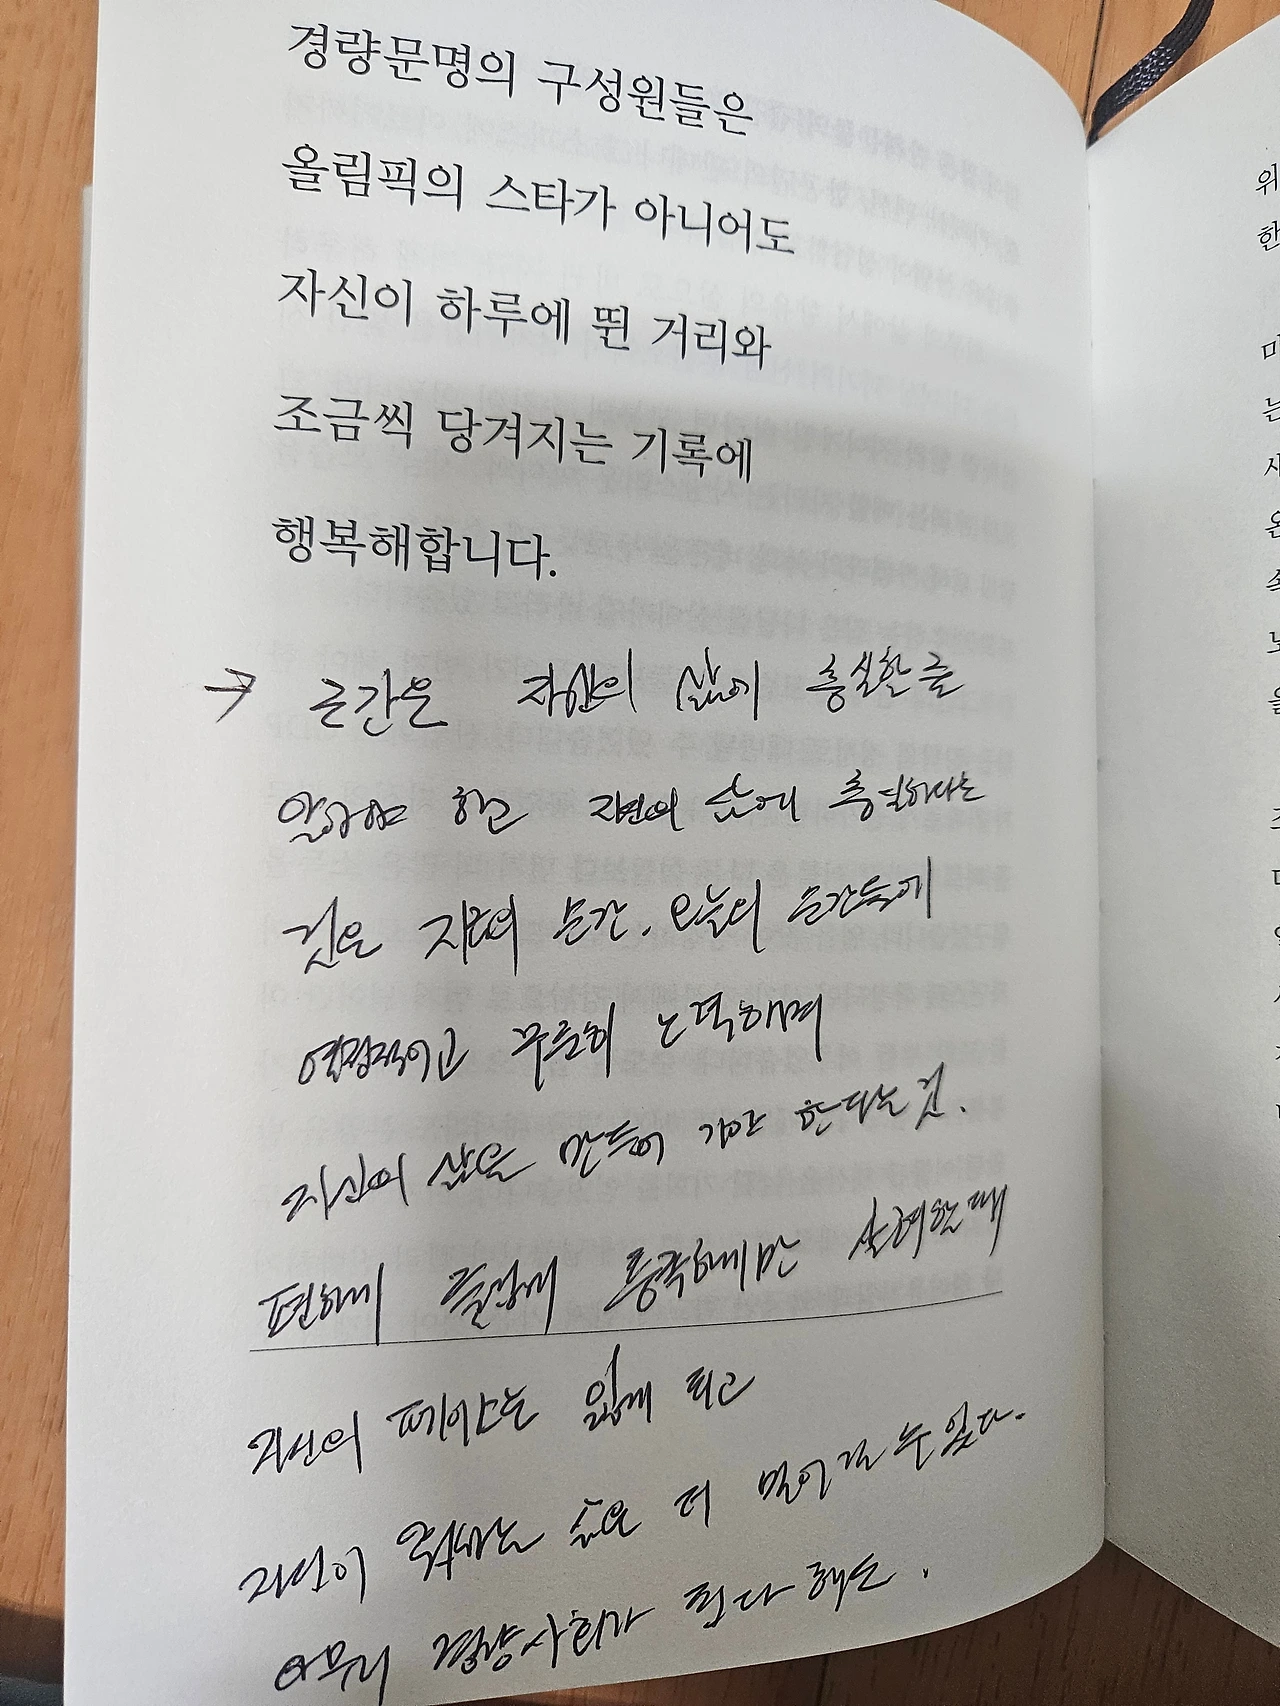 경량문명의 구성원들은
올림픽의 스타가 아니어도
자신이 하루에 뛴 거리와
조금씩 당겨지는 기록에
행복해합니다.
→ 근간은 자신의 삶에 충실함을
알아야 하고 자신의 삶에 충실하다는
것은 지금의 순간, 오늘의 순간들에
열정적이고 꾸준히 노력하며
자신의 삶을 만들어 가야 한다는 것.
편하게 즐겁게 생각할때
자신의 없게 되고
자신이 원하는 삶은 더 멀어질 수 있다.
아무리 경량사회가 된다 해도.
위
한
는
을